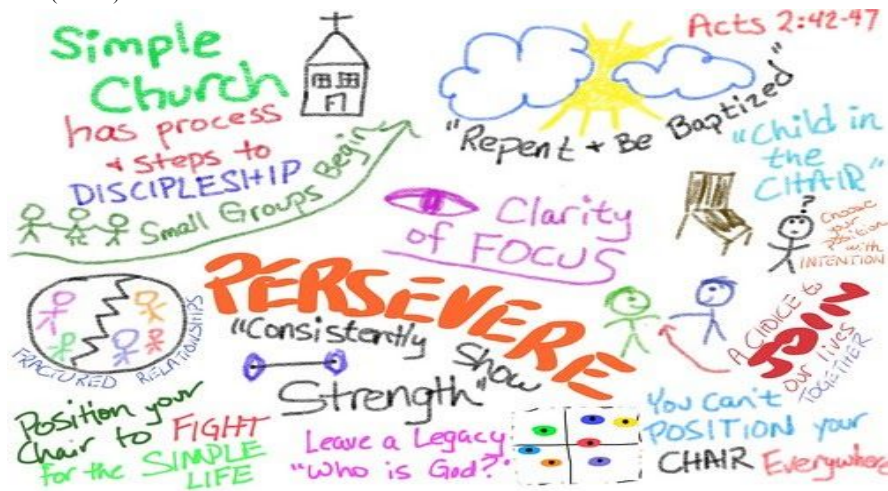 Simple
Church
has process
+ steps to
DISCIPLESHIP
Small Groups Begin
Acts 2:42-47
"Repent + Be Baptized"
"Child in
the
CHAIR"
?
Choose
your
position
with
INTENTION
Clarity
of FOCUS
FRACTURED RELATIONSHIPS
PERSEVERE
"Consistently
Show
Strength"
A CHOICE to
JOIN
our lives
TOGETHER
Position your
Chair to FIGHT
for the SIMPLE
LIFE
Leave a Legacy
"Who is God?"
You Can't
POSITION your
CHAIR Everywhere